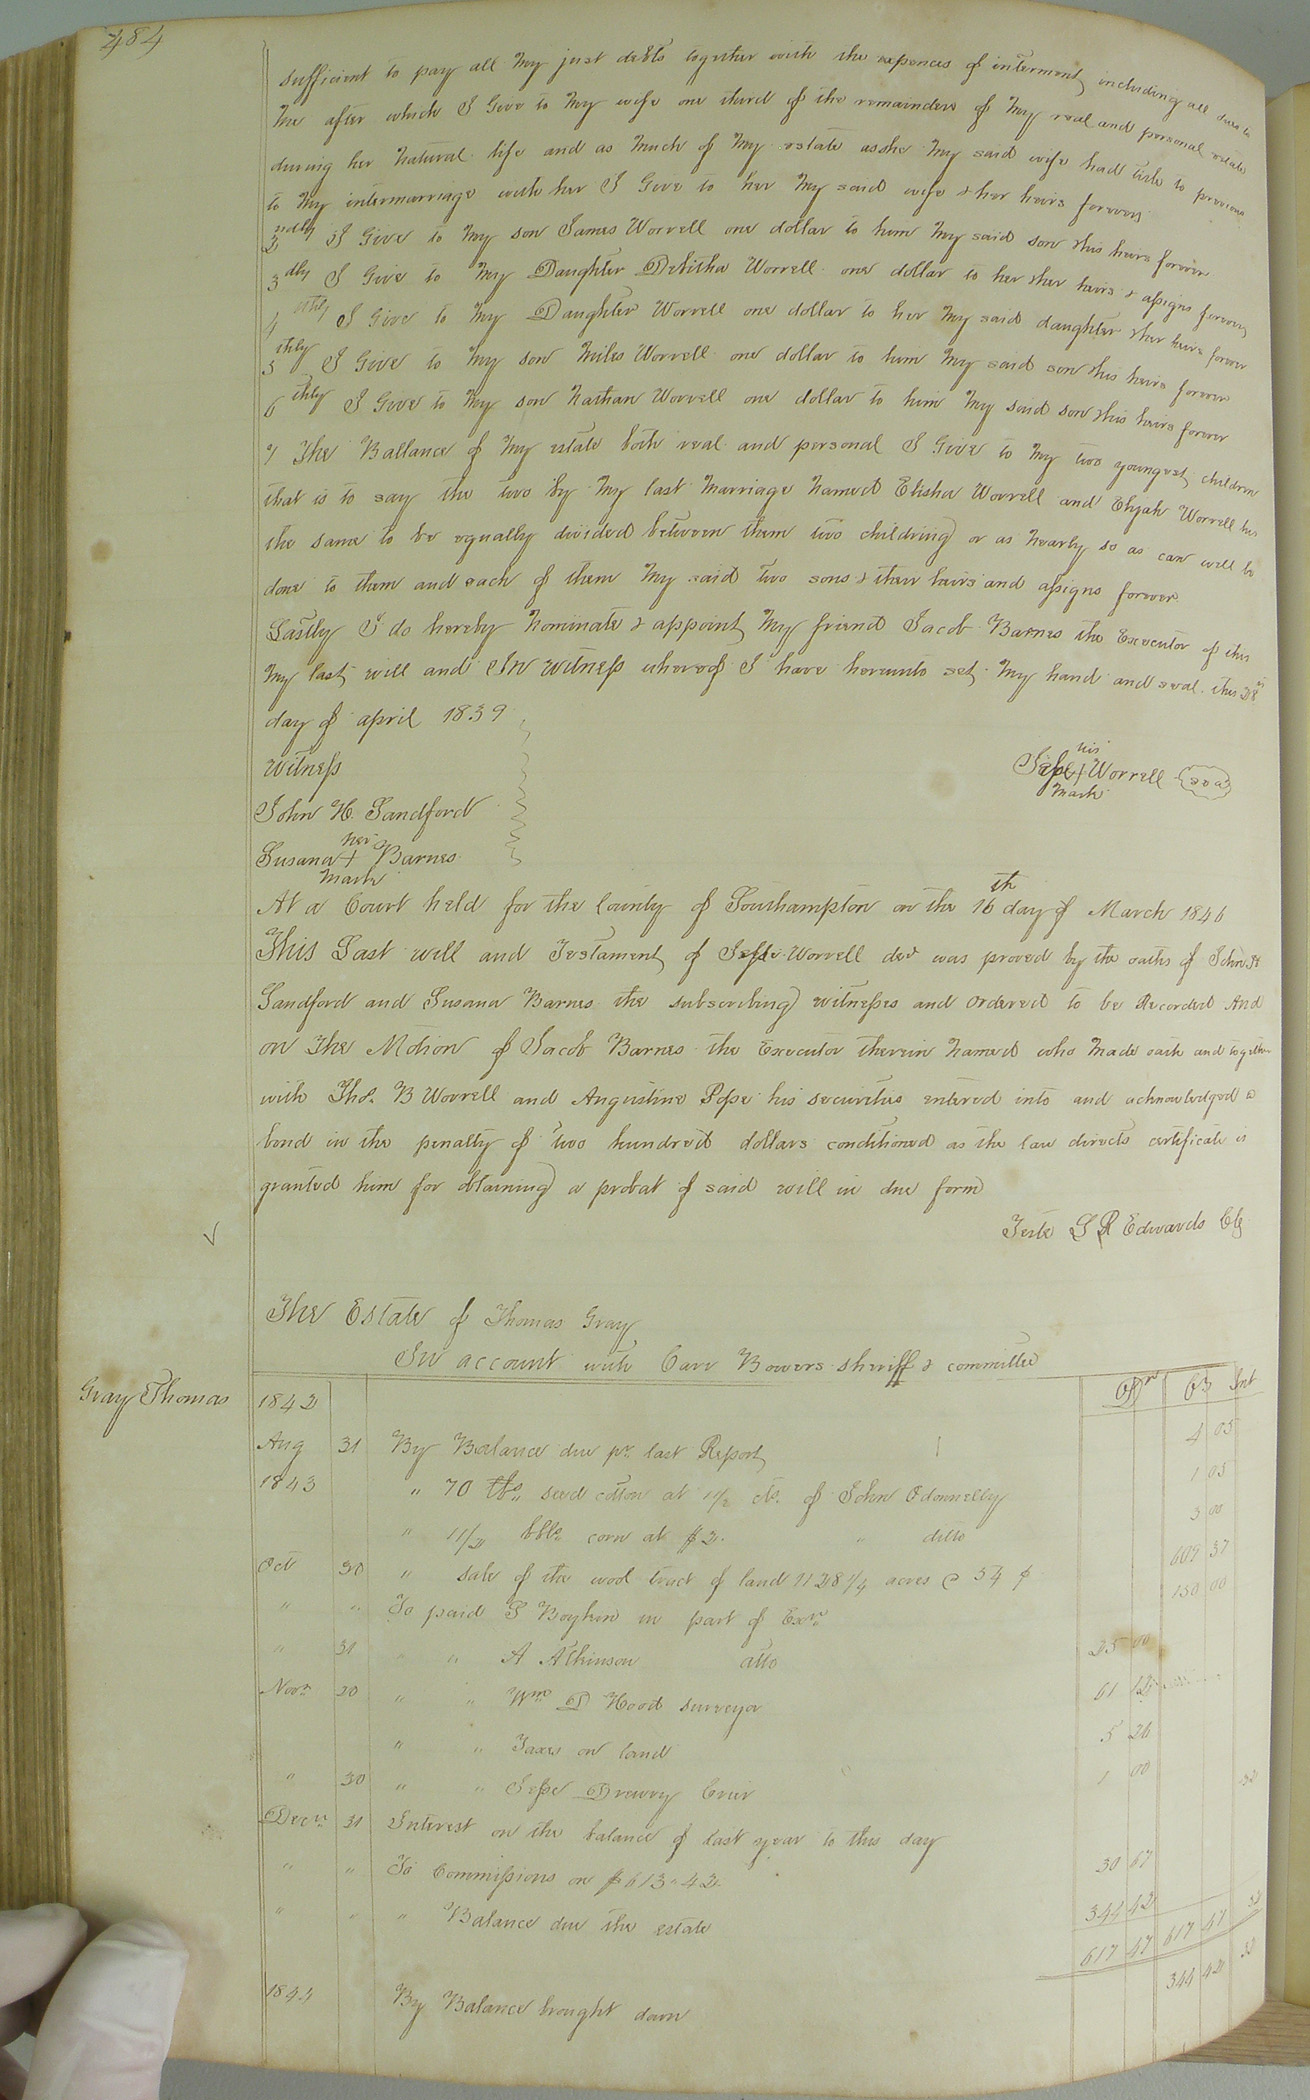 484
sufficient to pay all my just debts together with the expences of interment including all dues to
me after which I Give to my wife one third of the remainders of my real and personal estate
during her natural life and as much of my estate as she my said wife had title to previous
to my intermarriage with her I Give to her my said wife & her heirs forever
2ndly I Give to my son James Worrell one dollar to him my said son & his heirs forever
3dly I Give to my Daughter Worrell one dollar to her & her heirs & assigns forever
4thly I Give to my Daughter Worrell one dollar to her my said daughter & her heirs forever
5thly I Give to my son Miles Worrell one dollar to him my said son & his heirs forever
6thly I Give to my son Nathan Worrell one dollar to him my said son & his heirs forever
7 The Ballance of my estate both real and personal I Give to my two youngest children
that is to say the two by my last marriage named Elisha Worrell and Elijah Worrell
the same to be equally divided between them two childring or as nearly so as can will be
done to them and each of them my said two sons & their heirs and assigns forever
Lastly I do hereby nominate & appoint my friend Jacob Barnes the Executor of this
my last will and In witness whereof I have hereunto set my hand and seal this 28th
day of april 1839
witness
his
Jesse + Worrell seal
mark
John H. Sandford
her
Susana + Barnes
mark
At a Court held for the County of Southampton on the 16th day of March 1846
This Last will and Testament of Jesse Worrell decd was proved by the oaths of John H
Sandford and Susana Barnes the subscribing witnesses and ordered to be Recorded And
on The Motion of Jacob Barnes the Executor therein named who made oath and together
with Thos. B Worrell and Augustine Pope his securities entered into and acknowledged a
bond in the penalty of two hundred dollars conditioned as the law directs certificate is
granted him for obtaining a probat of said will in due form
Teste L R Edwards Clk
The Estate of Thomas Gray
In account with Carr Bowers sheriff & committee
Gray Thomas
1842 Dr Cr Int
Aug 31 By Balance due pr. last Report 4 05
1843 " 70 lbs. seed cotton at 1 1/2 cts. of John Odonnelly 1 05
" 1 1/2 bbls. corn at $2. " ditto 3 00
Oct 30 " sale of the wool tract of land 1128 1/4 acres @ 54 ¢ 609 37
" " To paid S Boykin in part of Exn 150 00
" 31 " " A Atkinson atto 25 00
Novr 20 " " Wm D Hood surveyor 61 12
" " Taxes on land 5 26
" 30 " " Jesse Drewry Crier 1 00
Decr 31 Interest on the balance of last year to this day 32
" " To Commissions on $613.42 30 67
" " " Balance due the estate 344 42
617 47 617 47 32
By Balance brought down 344 42 32